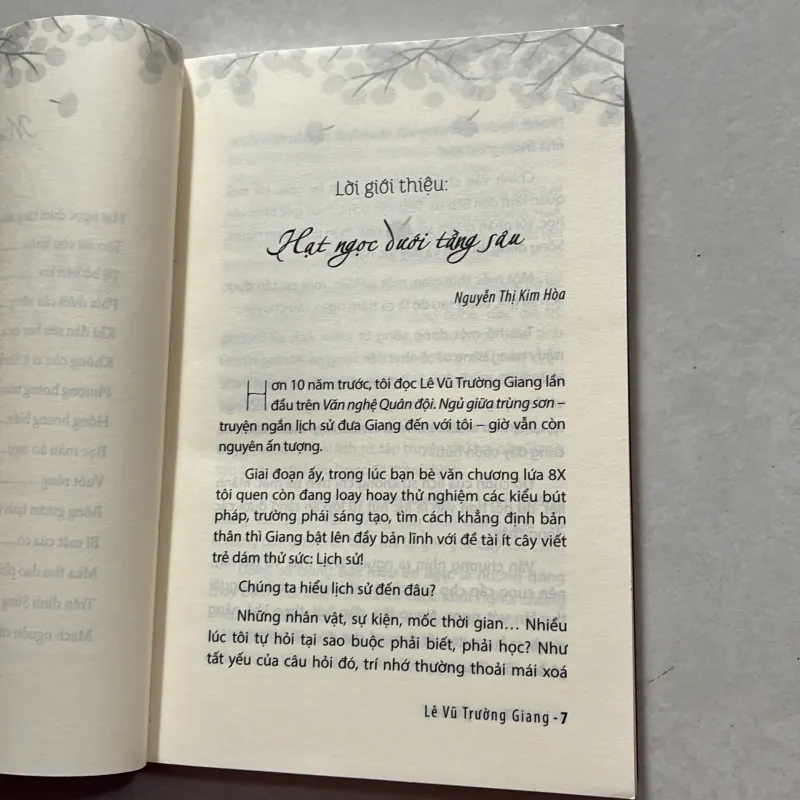 Lời giới thiệu:
Hạt ngọc dưới tầng sâu
Nguyễn Thị Kim Hòa
Hơn 10 năm trước, tôi đọc Lê Vũ Trường Giang lần
đầu trên Văn nghệ Quân đội. Ngủ giữa trùng sơn –
truyện ngắn lịch sử đưa Giang đến với tôi – giờ vẫn còn
nguyên ấn tượng.
Giai đoạn ấy, trong lúc bạn bè văn chương lứa 8X
tôi quen còn đang loay hoay thử nghiệm các kiểu bút
pháp, trường phái sáng tạo, tìm cách khẳng định bản
thân thì Giang bật lên đầy bản lĩnh với đề tài ít cây viết
trẻ dám thử sức: Lịch sử!
Chúng ta hiểu lịch sử đến đâu?
Những nhân vật, sự kiện, mốc thời gian... Nhiều
lúc tôi tự hỏi tại sao buộc phải biết, phải học? Như
tất yếu của câu hỏi đó, trí nhớ thường thoải mái xoá
Lê Vũ Trường Giang - 7